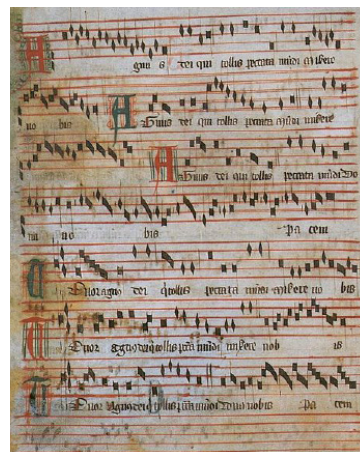 A gnus dei qui tollis peccata mundi miserere
no bis A Gnus dei qui tollis peccata mundi miserere
A Gnus dei qui tollis peccata mundi Do
na no bis Pa cem
Tenor agnus dei qi tollis peccata mundi miserere no bis
Tenor Agnus dei qi tollis pcca mundi miserere nob is
Tenor Agnus dei qi tollis mundi dona nobis Pa cem